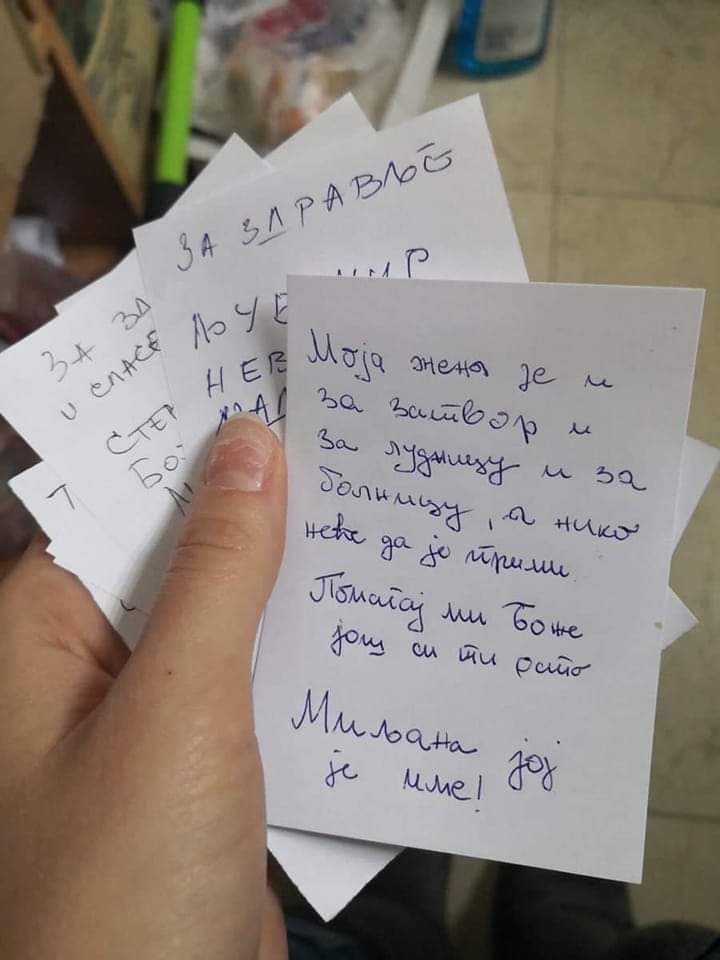 ЗА ЗДРАВЉЕ
ЗА ЗД
И СПАСЕ
Моја жена је и
за затвор и
за лудницу и за
болницу, а нико
неће да је прими.
Помагај ми Боже
још си ти остo
Миљана јој
је име!